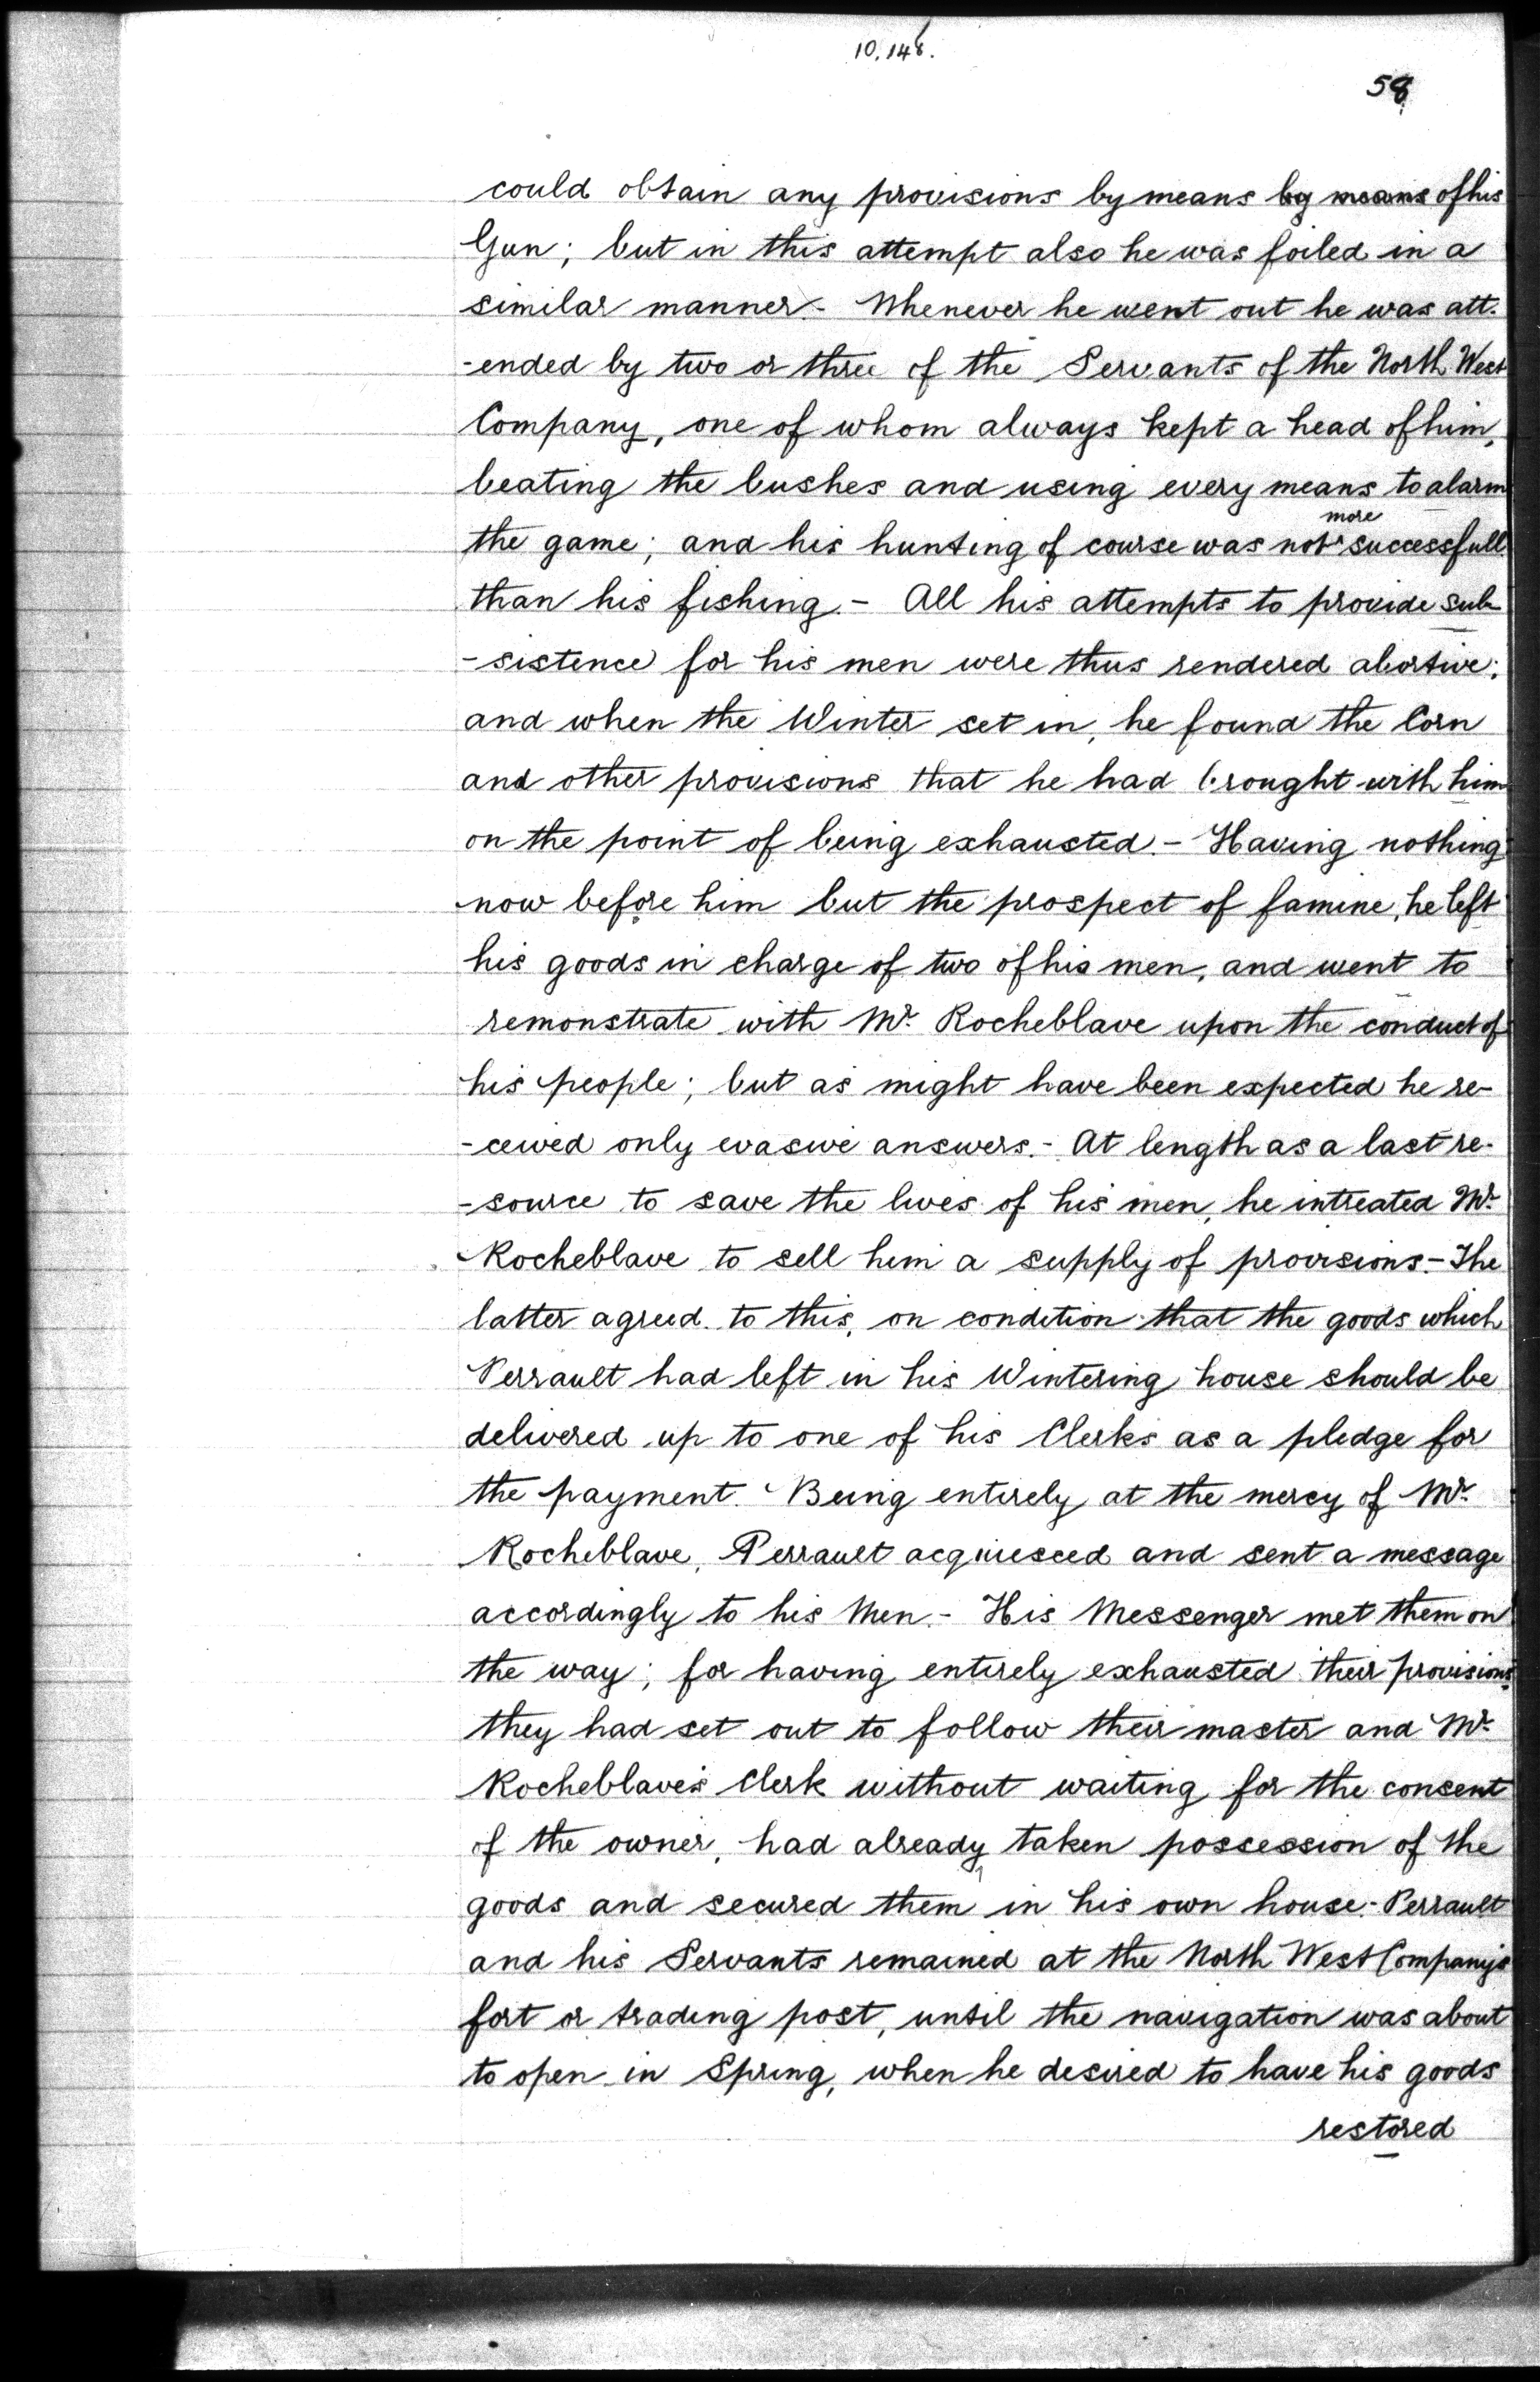 10,148.
58
could obtain any provisions by means by means of his
Gun; but in this attempt also he was foiled in a
similar manner - Whenever he went out he was att-
-ended by two or three of the Servants of the North West
Company, one of whom always kept a head of him,
beating the bushes and using every means to alarm
more
the game; and his hunting of course was not successfull
than his fishing. - All his attempts to provide sub-
-sistence for his men were thus rendered abortive;
and when the Winter set in, he found the Corn
and other provisions that he had brought with him
on the point of being exhausted. - Having nothing
now before him but the prospect of famine, he left
his goods in charge of two of his men, and went to
remonstrate with Mr. Rocheblave upon the conduct of
his people; but as might have been expected he re-
-ceived only evasive answers. - At length as a last re-
-source to save the lives of his men, he intreated Mr.
Rocheblave to sell him a supply of provisions. - The
latter agreed to this, on condition that the goods which
Perrault had left in his Wintering house should be
delivered up to one of his Clerks as a pledge for
the payment. Being entirely at the mercy of Mr.
Rocheblave, Perrault acquiesced and sent a message
accordingly to his Men. - His Messenger met them on
the way; for having entirely exhausted their provisions,
they had set out to follow their master and Mr.
Rocheblave's Clerk without waiting for the consent
of the owner, had already taken possession of the
goods and secured them in his own house. - Perrault
and his Servants remained at the North West Company's
fort or trading post, until the navigation was about
to open in Spring, when he desired to have his goods
restored